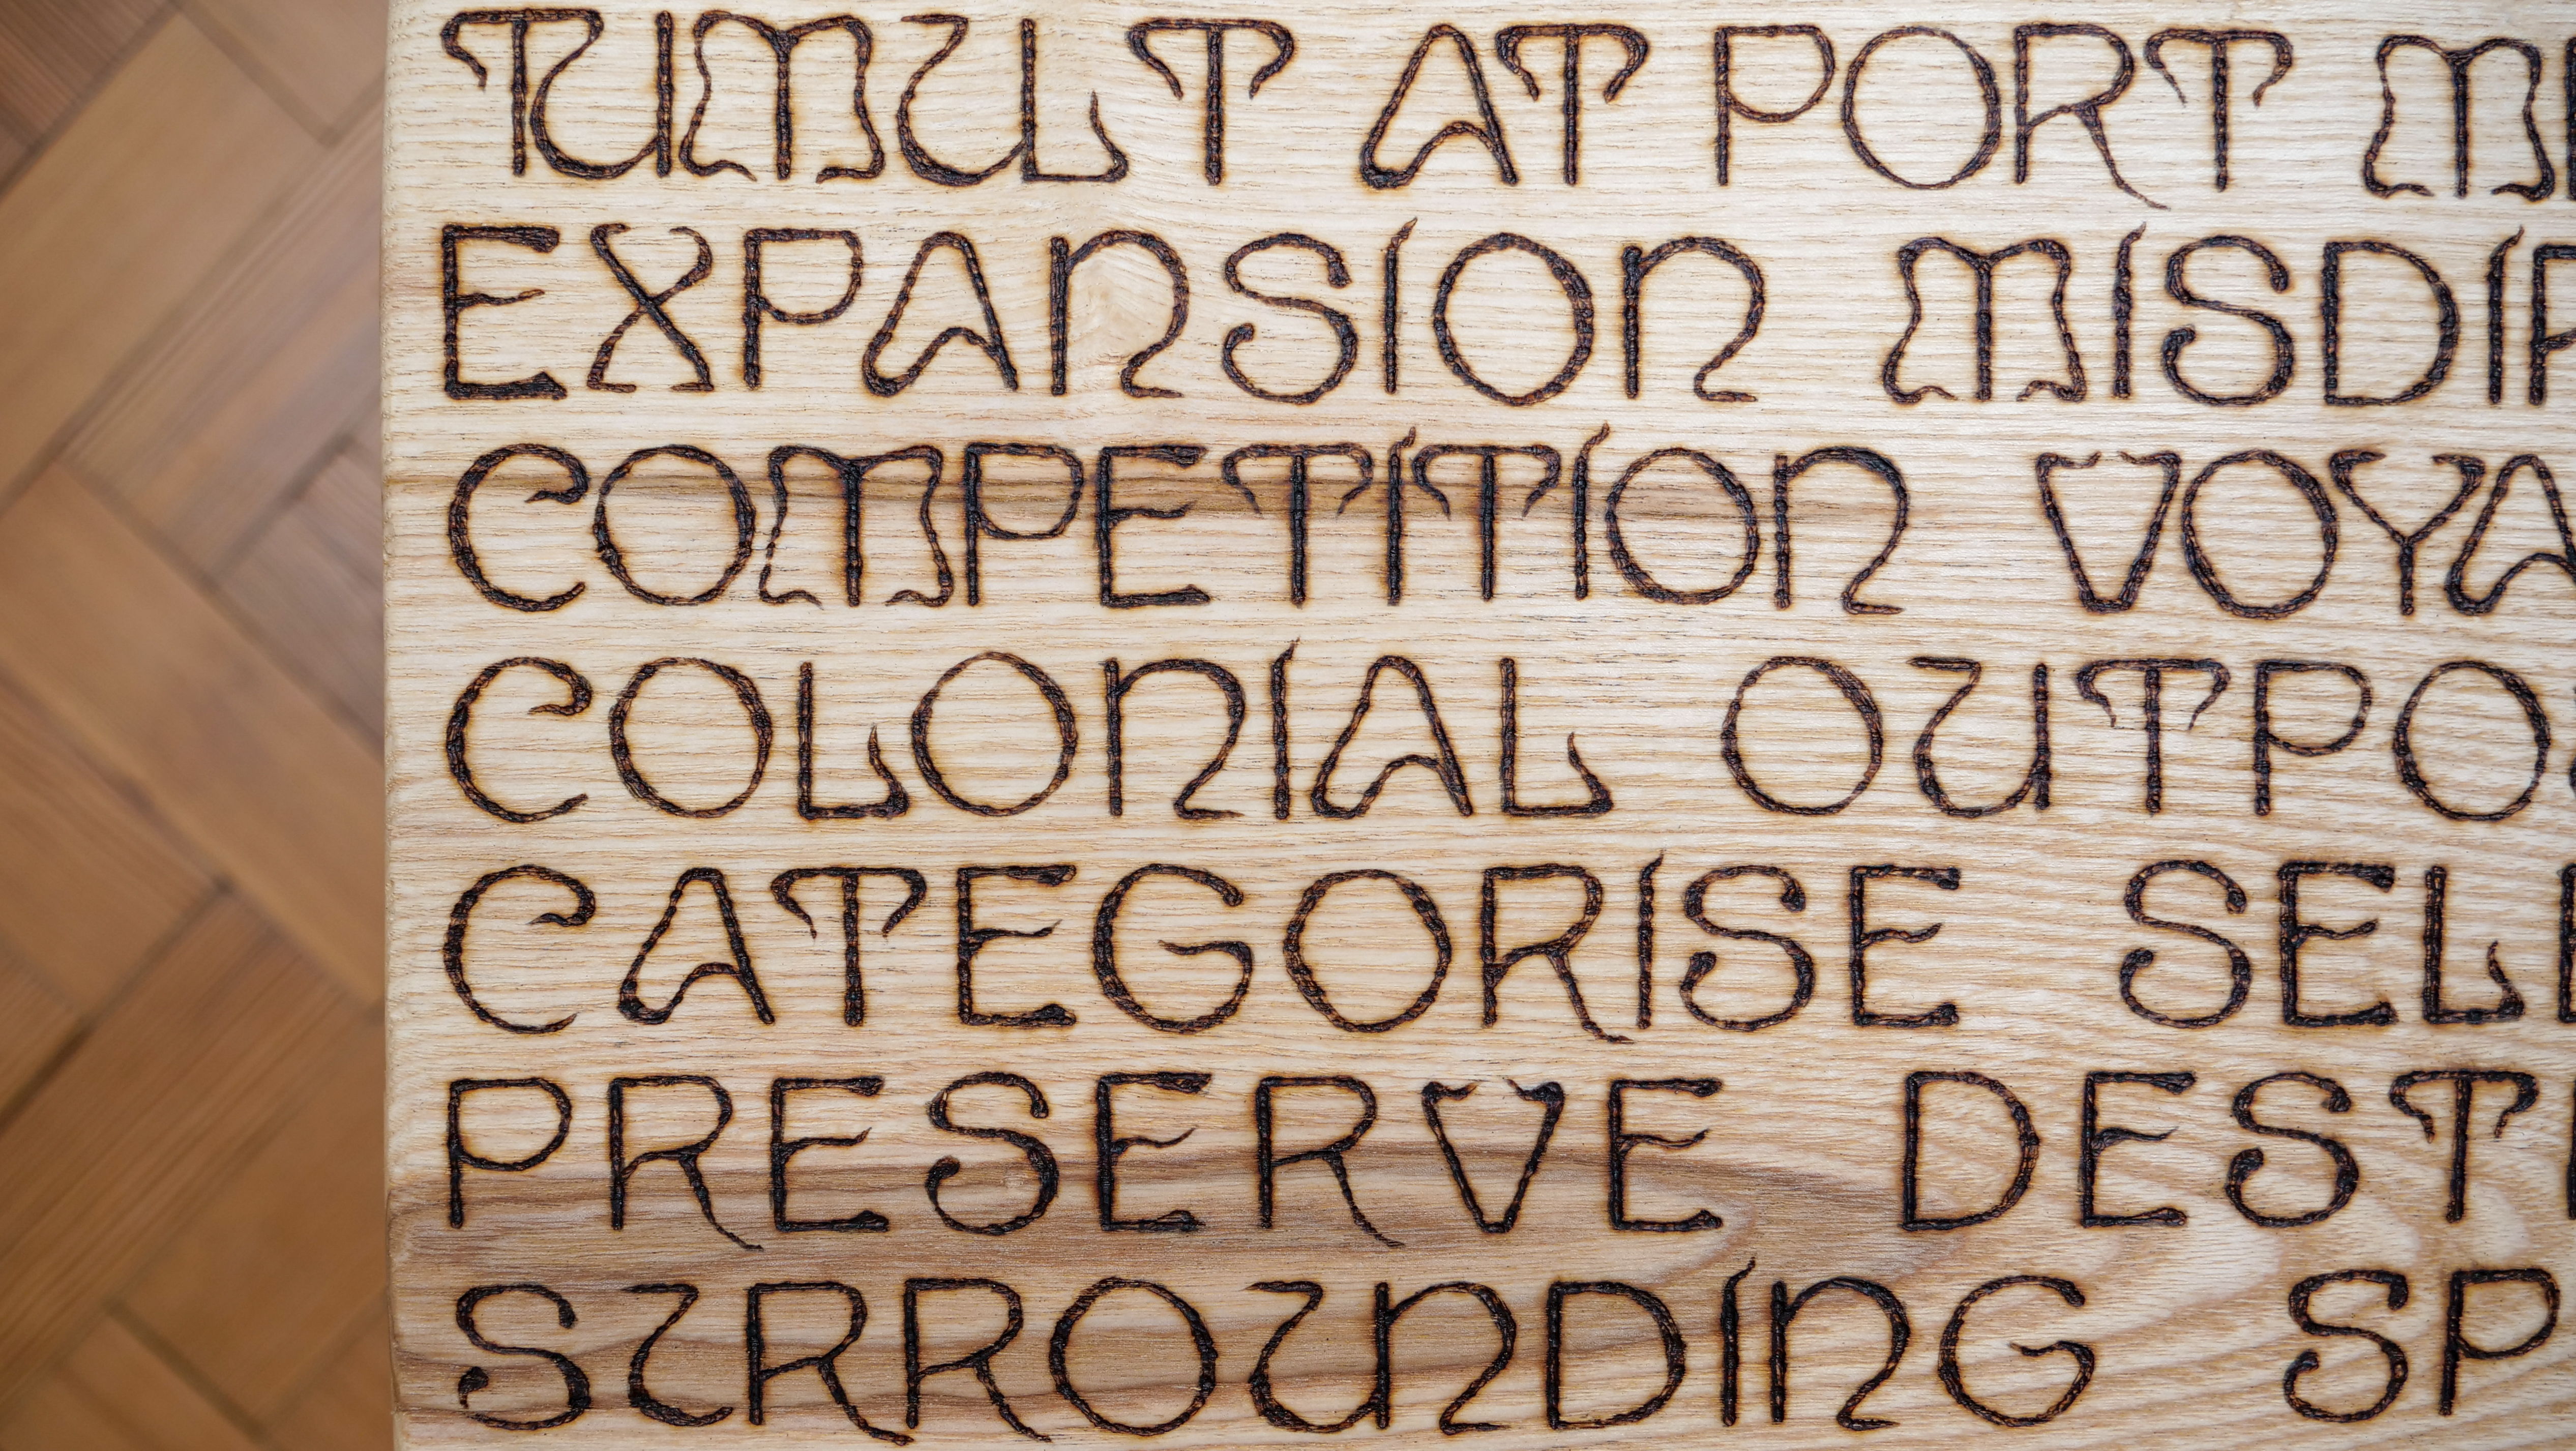 TUMULT AT PORT M
EXPANSION MISDIR
COMPETITION VOYA
COLONIAL OUTPO
CATEGORISE SELE
PRESERVE DEST
SURROUNDING SP